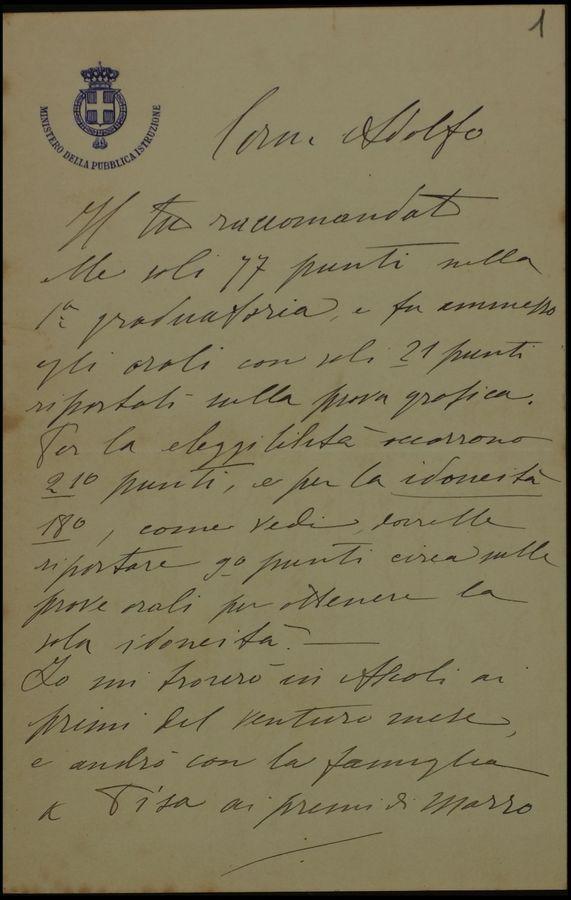 1
MINISTERO DELLA PUBBLICA ISTRUZIONE
Caro Adolfo
Il tuo raccomandato
ebbe soli 77 punti nella
1a graduatoria, e fu ammesso
agli orali con soli 21 punti
riportati nella prova grafica.
Per la eleggibilità occorrono
210 punti, e per la idoneità
180, come vedi, dovrebbe
riportare 90 punti circa nelle
prove orali per ottenere la
sola idoneità. —
Io mi troverò in Ascoli ai
primi del venturo mese,
e andrò con la famiglia
a Pisa ai primi di Marzo